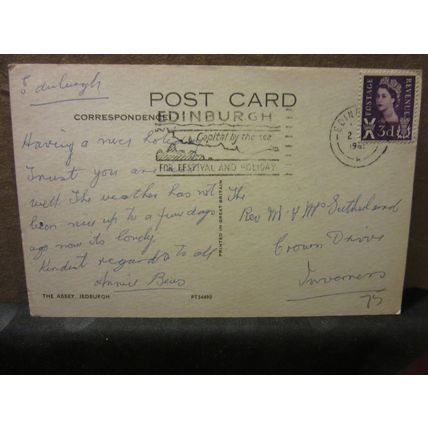 Edinburgh
POST CARD
CORRESPONDENCE
EDINBURGH
Capital by the sea
FOR FESTIVAL AND HOLIDAY
POSTAGE
REVENUE
3d
EDINB
2
196
Having a nice holiday
Trust you are
well The weather has not
been nice up to a few days
ago now its lovely
Kindest regards to all
Annie
THE ABBEY, JEDBURGH
PT34490
PRINTED IN GREAT BRITAIN
The
Rev Mr & Mrs Sutherland
Crown Drive
Inverness